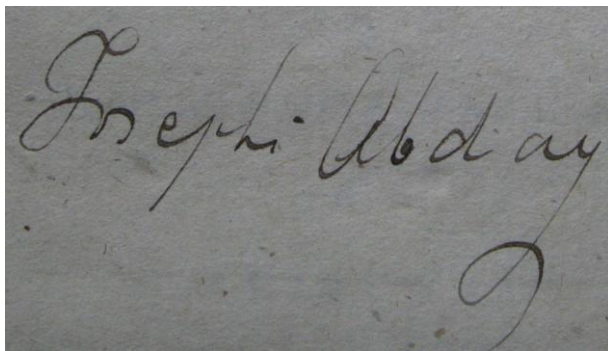 Joseph Abday